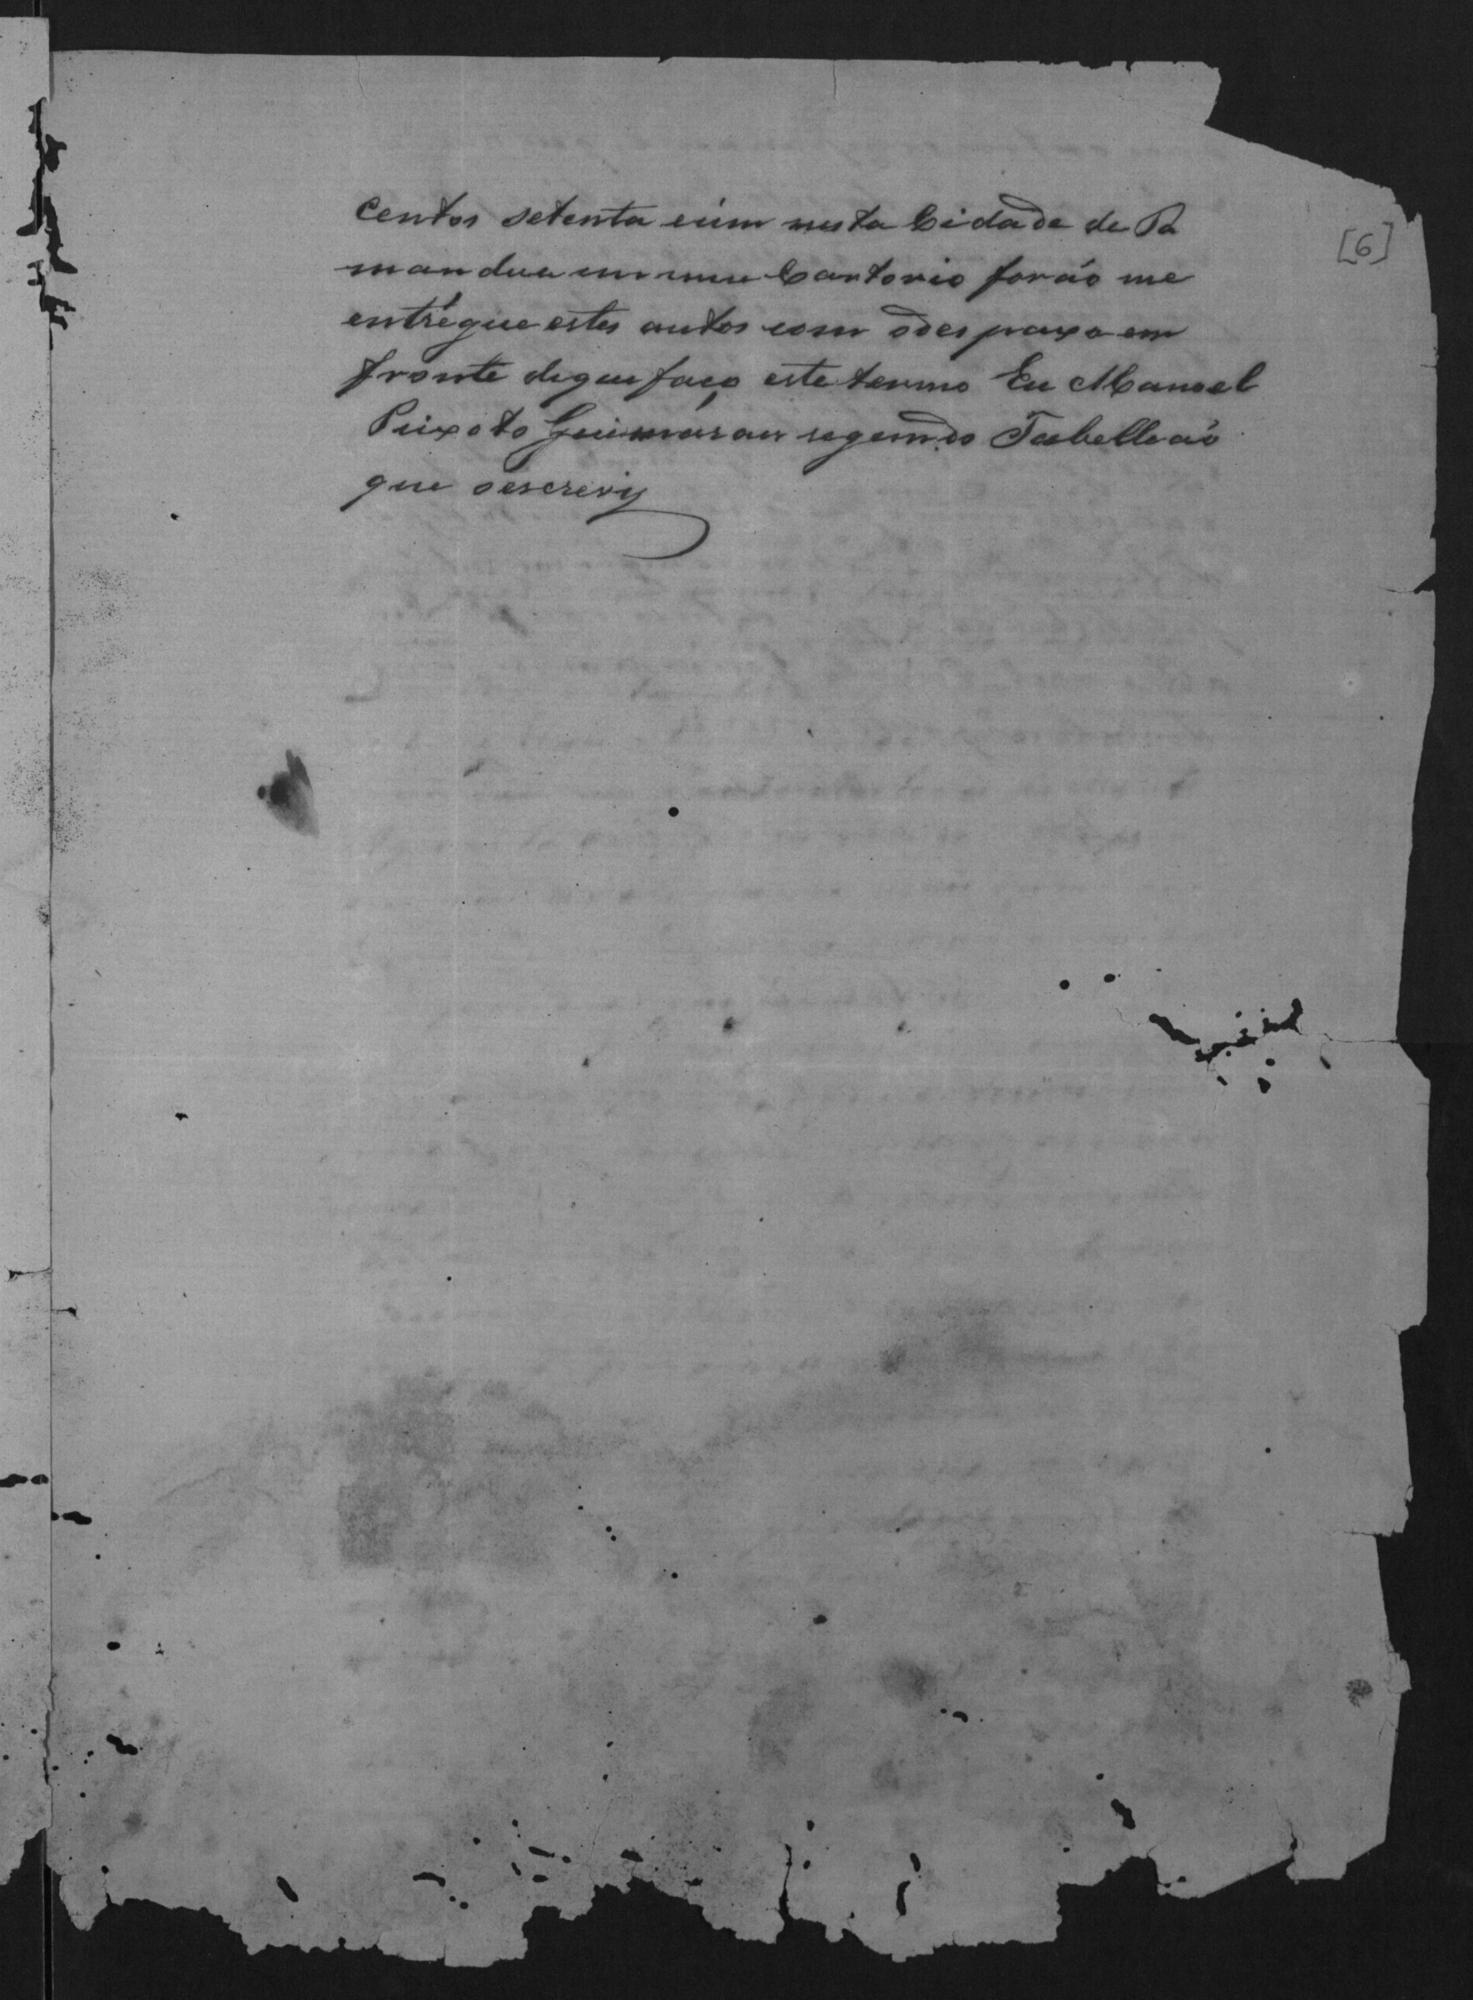 centos setenta eúm nesta Cidade de Pa
mandua em meu Cartorio forão me
entrégue estes autos com odespaxo em
fronte deque faço este termo Eu Manoel
Peixoto Guimarães segundo Tabelleaó
que oescrevy
[6]